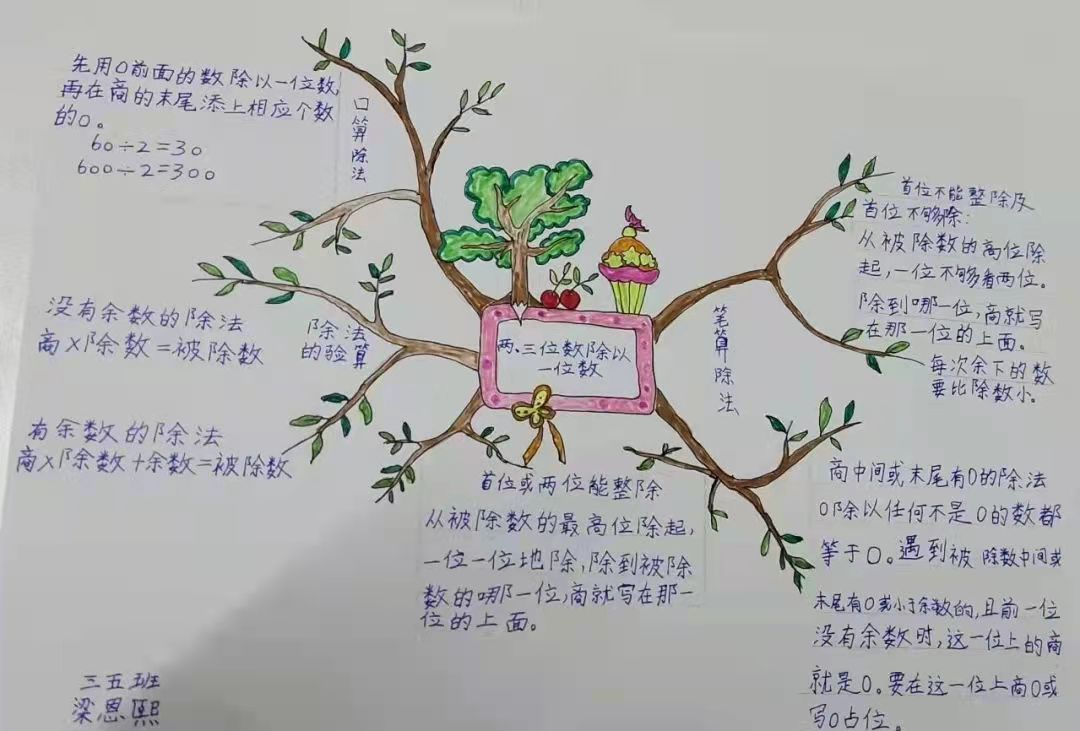 先用0前面的数除以一位数,
再在商的末尾添上相应个数
的0。
60÷2=30
600÷2=300
口算除法
没有余数的除法
商×除数=被除数
除法
的验算
有余数的除法
商×除数+余数=被除数
两、三位数除以
一位数
笔算除法
首位不能整除及
首位不够除:
从被除数的高位除
起,一位不够看两位。
除到哪一位,商就写
在那一位的上面。
每次余下的数
要比除数小。
首位或两位能整除
从被除数的最高位除起,
一位一位地除,除到被除
数的哪一位,商就写在那一
位的上面。
商中间或末尾有0的除法
0除以任何不是0的数都
等于0。遇到被除数中间或
末尾有0或小于余数的,且前一位
没有余数时,这一位上的商
就是0。要在这一位上商0或
写0占位。
三五班
梁恩熙